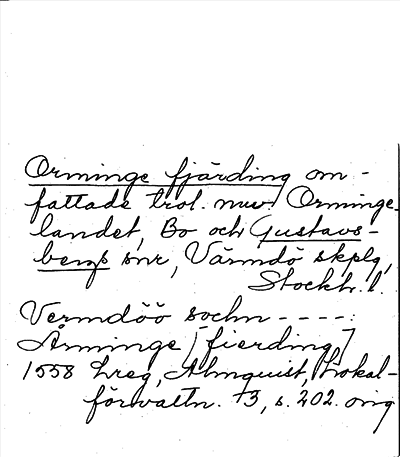 Orminge fjärding om-
fattade trol. nuv. Orminge-
landet, Bo och Gustavs-
bergs snr, Värmdö skplg,
Stockh. l.
Vermdöö sochn - - - - :
Åminge [fierding]
1558 hreg, Almquist, Lokal-
förvaltn. 3, s. 202. orig